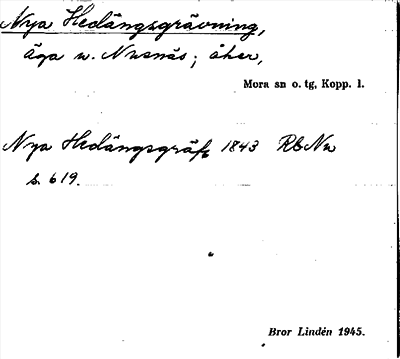 Nya Hedängsgrävning,
äga n. Nusnäs; åker,
Mora sn o. tg, Kopp. l.
Nya Hedängsgräft 1843 RbNu
s. 619.
Bror Lindén 1945.